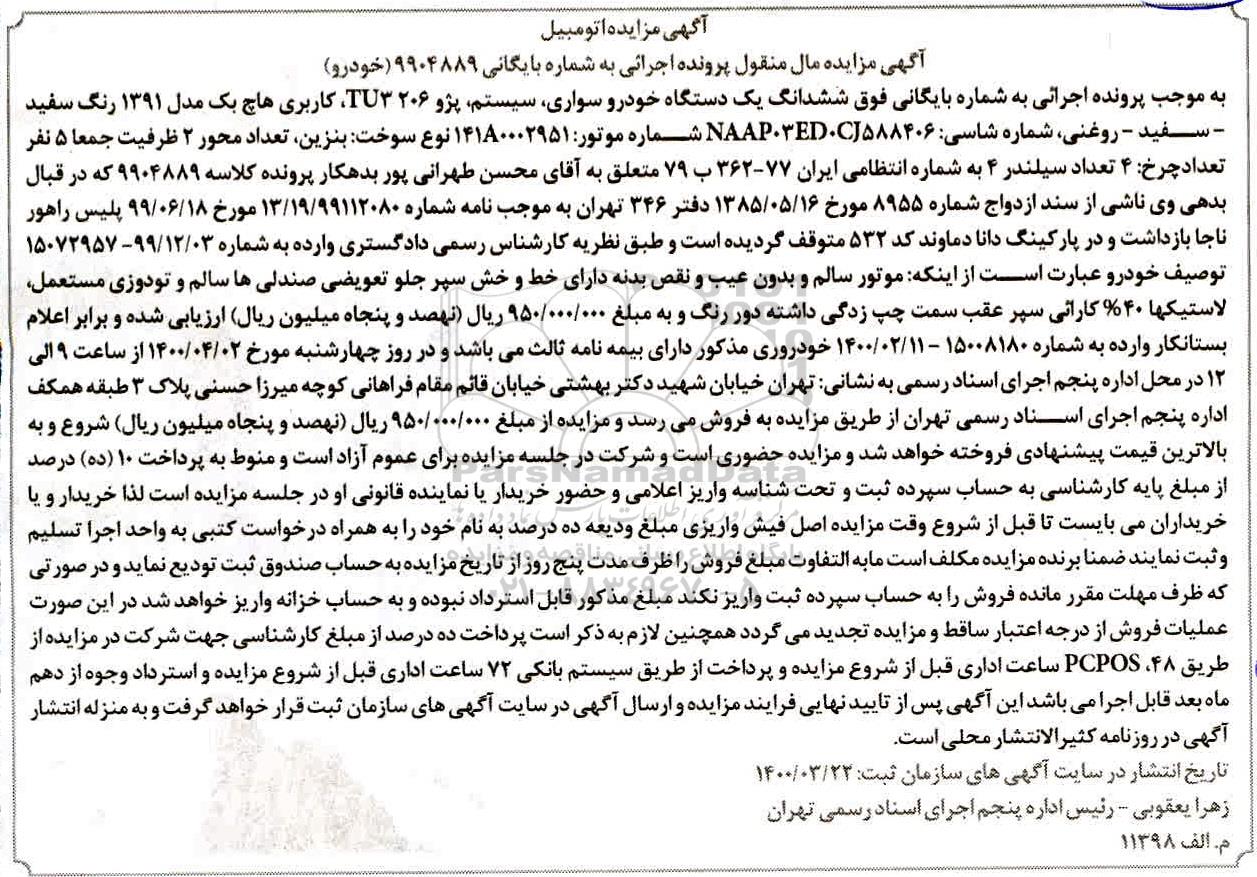 آگهی مزایده اتومبیل
آگهی مزایده مال منقول پرونده اجرائی به شماره بایگانی ۹۹۰۴۸۸۹ (خودرو)
به موجب پرونده اجرائی به شماره بایگانی فوق ششدانگ یک دستگاه خودرو سواری، سیستم، پژو ۲۰۶ TU۳، کاربری هاچ بک مدل ۱۳۹۱ رنگ سفید
- سفید - روغنی، شماره شاسی: NAAP۰۳ED۰CJ۵۸۸۴۰۶ شماره موتور: ۱۴۱A۰۰۰۲۹۵۱ نوع سوخت: بنزین، تعداد محور ۲ ظرفیت جمعا ۵ نفر
تعداد چرخ: ۴ تعداد سیلندر ۴ به شماره انتظامی ایران ۷۷-۳۶۲ ب ۷۹ متعلق به آقای محسن طهرانی پور بدهکار پرونده کلاسه ۹۹۰۴۸۸۹ که در قبال
بدهی وی ناشی از سند ازدواج شماره ۸۹۵۵ مورخ ۱۳۸۵/۰۵/۱۶ دفتر ۳۴۶ تهران به موجب نامه شماره ۱۳/۱۹/۹۹۱۱۲۰۸۰ مورخ ۹۹/۰۶/۱۸ پلیس راهور
ناجا بازداشت و در پارکینگ دانا دماوند کد ۵۳۲ متوقف گردیده است و طبق نظریه کارشناس رسمی دادگستری وارده به شماره ۹۹/۱۲/۰۳- ۱۵۰۷۲۹۵۷
توصیف خودرو عبارت است از اینکه: موتور سالم و بدون عیب و نقص بدنه دارای خط و خش سپر جلو تعویضی صندلی ها سالم و تودوزی مستعمل،
لاستیکها ۴۰% کارائی سپر عقب سمت چپ زدگی داشته دور رنگ و به مبلغ ۹۵۰/۰۰۰/۰۰۰ ریال (نهصد و پنجاه میلیون ریال) ارزیابی شده و برابر اعلام
بستانکار وارده به شماره ۱۵۰۰۸۱۸۰ - ۱۴۰۰/۰۲/۱۱ خودروری مذکور دارای بیمه نامه ثالث می باشد و در روز چهارشنبه مورخ ۱۴۰۰/۰۴/۰۲ از ساعت ۹ الی
۱۲ در محل اداره پنجم اجرای اسناد رسمی به نشانی: تهران خیابان شهید دکتر بهشتی خیابان قائم مقام فراهانی کوچه میرزا حسنی پلاک ۳ طبقه همکف
اداره پنجم اجرای اسناد رسمی تهران از طریق مزایده به فروش می رسد و مزایده از مبلغ ۹۵۰/۰۰۰/۰۰۰ ریال (نهصد و پنجاه میلیون ریال) شروع و به
بالاترین قیمت پیشنهادی فروخته خواهد شد و مزایده حضوری است و شرکت در جلسه مزایده برای عموم آزاد است و منوط به پرداخت ۱۰ (ده) درصد
از مبلغ پایه کارشناسی به حساب سپرده ثبت و تحت شناسه واریز اعلامی و حضور خریدار یا نماینده قانونی او در جلسه مزایده است لذا خریدار و یا
خریداران می بایست تا قبل از شروع وقت مزایده اصل فیش واریزی مبلغ ودیعه ده درصد به نام خود را به همراه درخواست کتبی به واحد اجرا تسلیم
و ثبت نمایند ضمنا برنده مزایده مکلف است مابه التفاوت مبلغ فروش را ظرف مدت پنج روز از تاریخ مزایده به حساب صندوق ثبت تودیع نماید و در صورتی
که ظرف مهلت مقرر مانده فروش را به حساب سپرده ثبت واریز نکند مبلغ مذکور قابل استرداد نبوده و به حساب خزانه واریز خواهد شد در این صورت
عملیات فروش از درجه اعتبار ساقط و مزایده تجدید می گردد همچنین لازم به ذکر است پرداخت ده درصد از مبلغ کارشناسی جهت شرکت در مزایده از
طریق PCPOS ،۴۸ ساعت اداری قبل از شروع مزایده و پرداخت از طریق سیستم بانکی ۷۲ ساعت اداری قبل از شروع مزایده و استرداد وجوه از دهم
ماه بعد قابل اجرا می باشد این آگهی پس از تایید نهایی فرایند مزایده و ارسال آگهی در سایت آگهی های سازمان ثبت قرار خواهد گرفت و به منزله انتشار
آگهی در روزنامه کثیرالانتشار محلی است.
تاریخ انتشار در سایت آگهی های سازمان ثبت: ۱۴۰۰/۰۳/۲۲
زهرا یعقوبی - رئیس اداره پنجم اجرای اسناد رسمی تهران
م. الف ۱۱۳۹۸
ParsNamadData